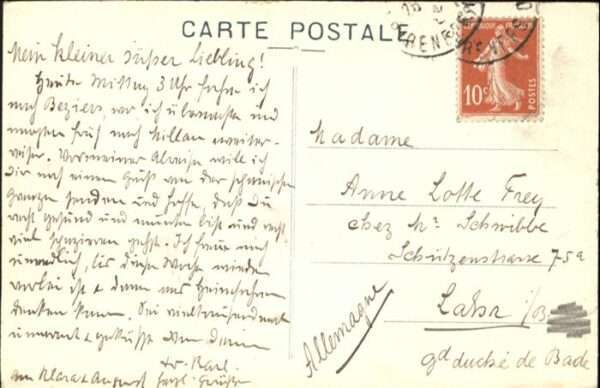 CARTE POSTALE
Mein kleiner süßer Liebling!
Heute Mittag 3 Uhr fahre ich
nach Beziers, wo ich übernachte und
morgen früh nach Millau weiter-
reise. Vor meiner Abreise will ich
Dir noch einen Gruß von der spanischen
Grenze senden und hoffe, daß Du
recht gesund und munter bist und recht
viel spazieren gehst. Ich freue mich
unendlich, bis diese Woche wieder
vorbei ist & dann ans Heimfahren
denken kann. Sei vieltausendmal
umarmt & geküßt von Deinem
tr. Karl.
an Klara & August herzl. Grüße
10c
POSTES
Madame
Anne Lotte Frey
chez Mr Schwibbe
Schützenstrasse 75a
Lahr i/B
Allemagne
gd duché de Bade